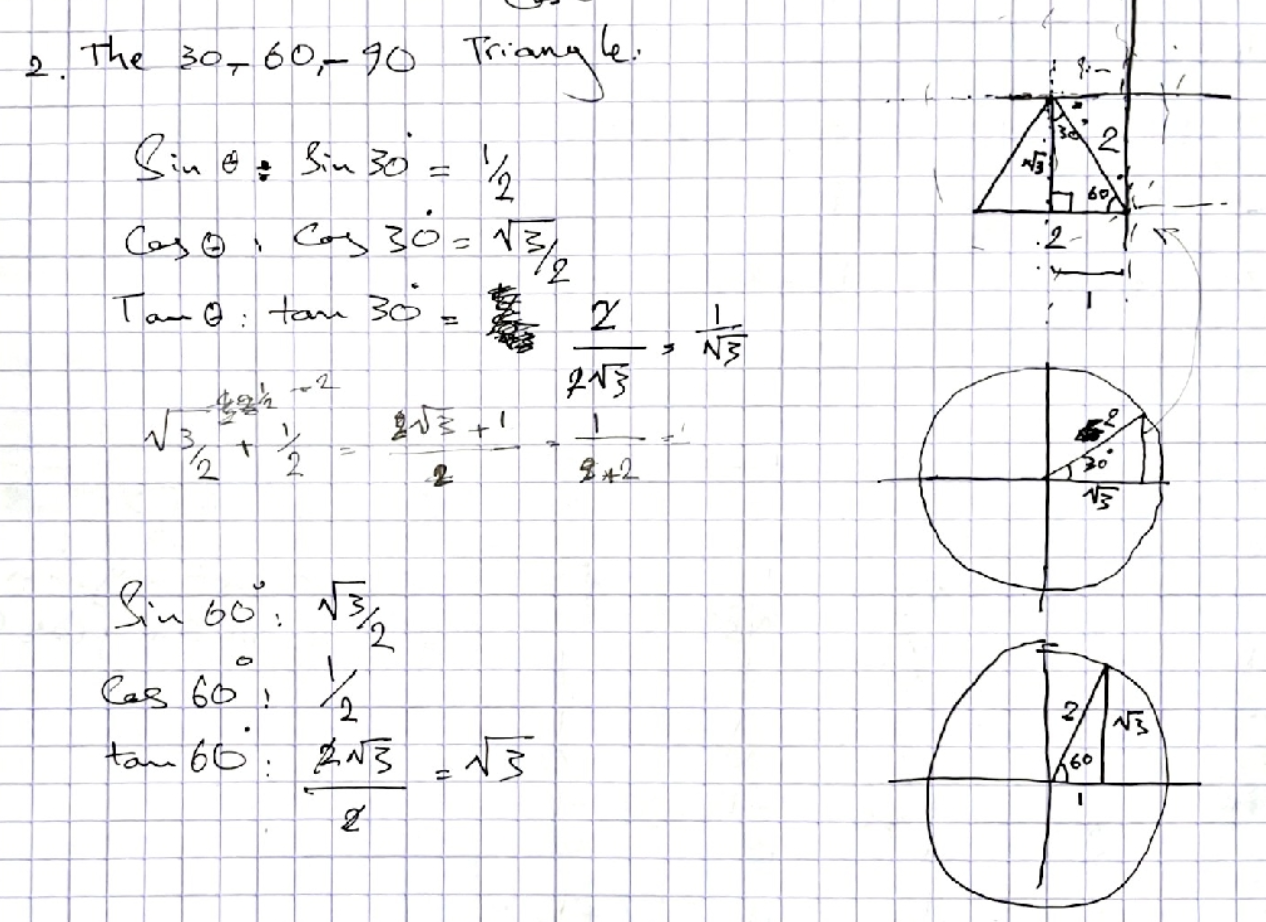 2. The 30, 60, 90 Triangle.
Sin θ : Sin 30° = 1/2
Cos θ : Cos 30° = √3/2
Tan θ : tan 30° = 2/2√3 = 1/√3
√3/2 + 1/2 = 2√3 + 1/2 = 1/2+2 =
Sin 60° : √3/2
Cos 60° : 1/2
tan 60° : 2√3/2 = √3
30°
2
√3
60
2
1
2
30°
√3
2
√3
60
1